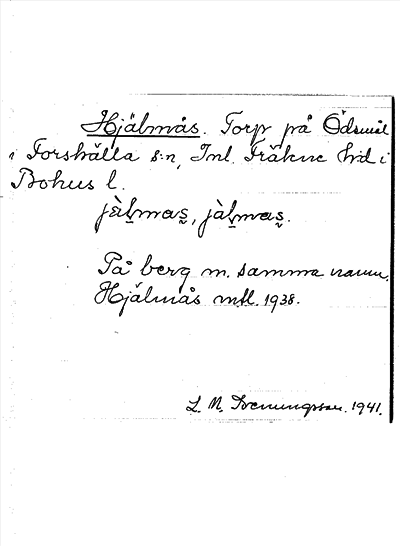 Hjälmås. Torp på Ödsmål
i Forshälla s:n, Inl. Fräkne hd i
Bohus l.
jàl̯mas̯, jàl̯mas̯.
På berg m. samma namn.
Hjälmås mtl. 1938.
L. M. Svenungsson. 1941.